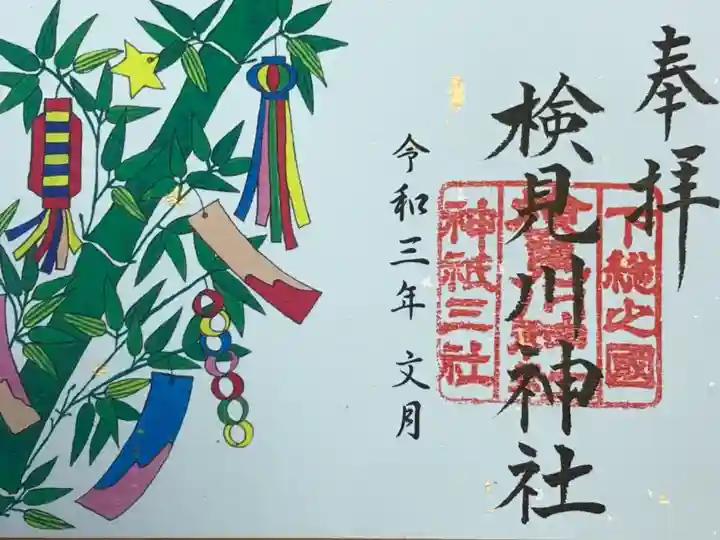 奉拝
検見川神社
下総之國
神祇三社
令和三年 文月